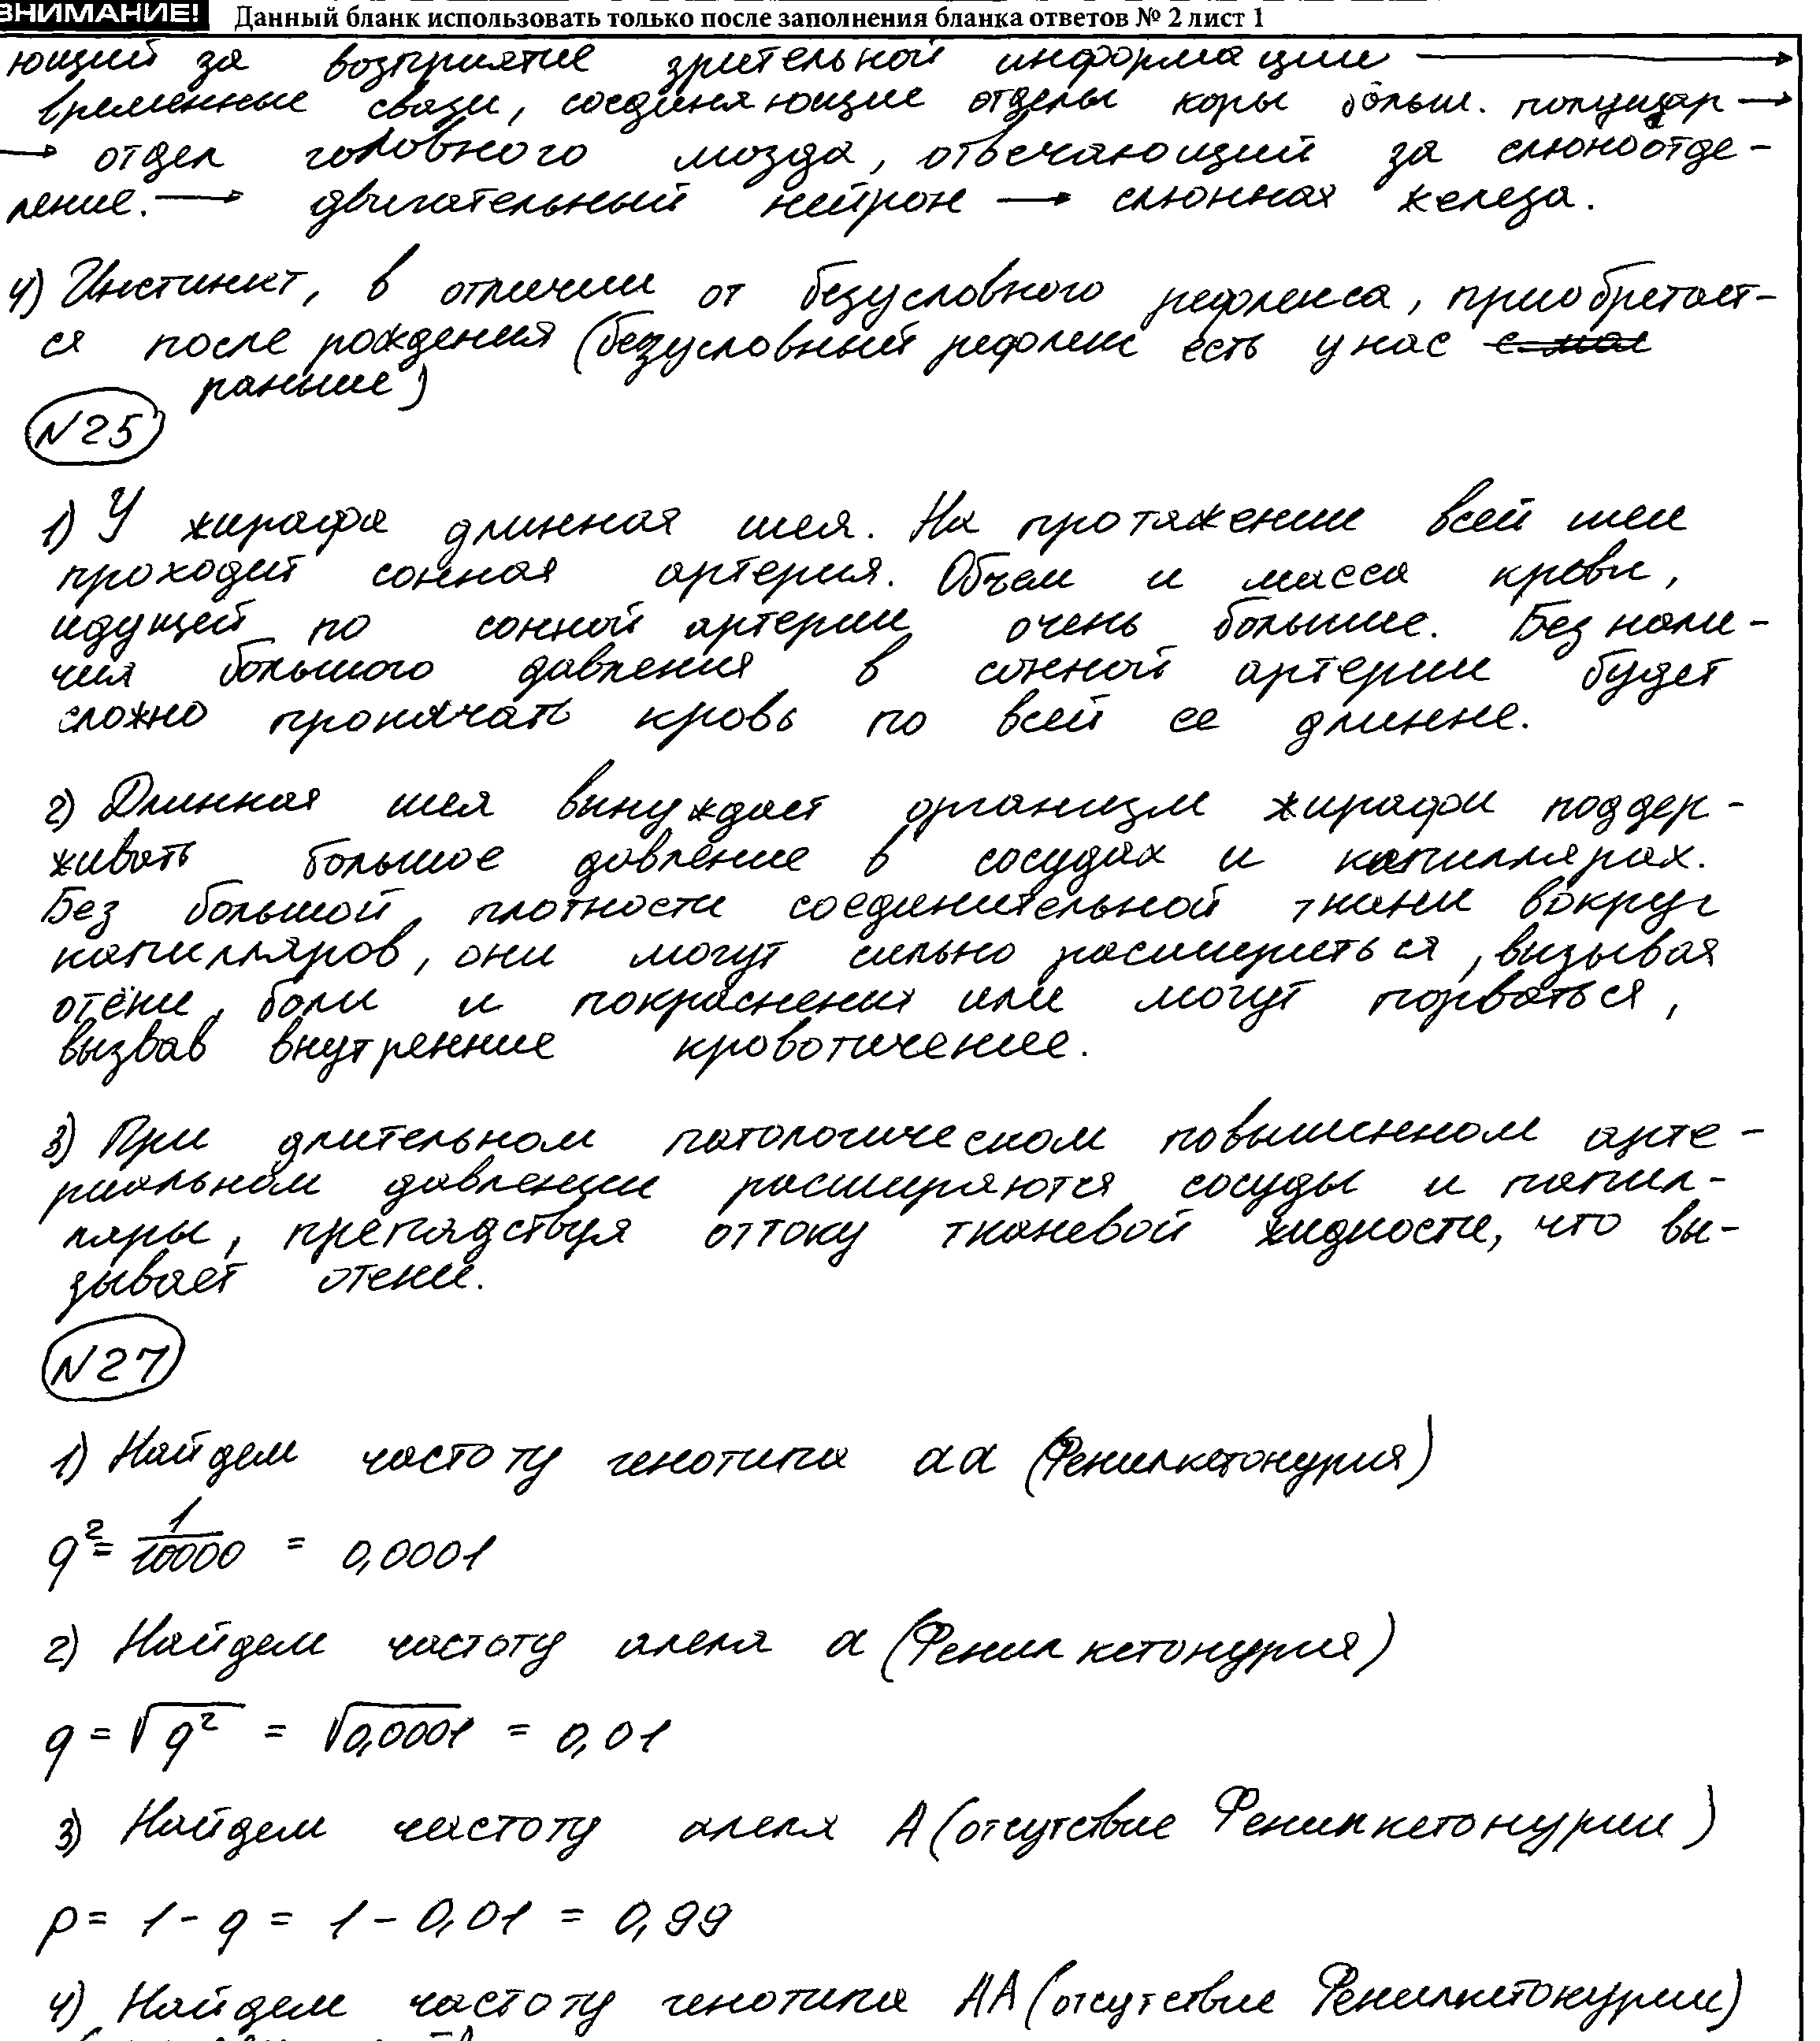 ВНИМАНИЕ! Данный бланк использовать только после заполнения бланка ответов № 2 лист 1
ющий за восприятие зрительной информации →
временные связи, соединяющие отделы коры больш. полушар →
→ отдел головного мозга, отвечающий за слюноотде-
ление. → двигательный нейрон → слюнная железа.
4) Инстинкт, в отличии от безусловного рефлекса, приобретает-
ся после рождения (безусловный рефлекс есть у нас
раньше)
N25
1) У жирафа длинная шея. На протяжении всей шеи
проходит сонная артерия. Объем и масса крови,
идущей по сонной артерии очень большие. Без нали-
чия большого давления в сонной артерии будет
сложно прокачать кровь по всей ее длинне.
2) Длинная шея вынуждает организм жирафи поддер-
живать большое давление в сосудах и капиллярах.
Без большой плотности соединительной ткани вокруг
капилляров, они могут сильно расшириться, вызывая
отёки, боли и покраснения или могут порваться,
вызвав внутренние кровотичение.
3) При длительном патологическом повышенном арте-
риальном давлении расширяются сосуды и капил-
ляры, препядствуя оттоку тканевой жидкости, что вы-
зывает отеки.
N27
1) Найдем частоту генотипа aa (Фенилкетонурия)
q² = 1/10000 = 0,0001
2) Найдем частоту алеля a (Фенилкетонурия)
q = √q² = √0,0001 = 0,01
3) Найдем частоту алеля A (отсутствие Фенилкетонурии)
p = 1 - q = 1 - 0,01 = 0,99
4) Найдем частоту генотипа AA (отсутствие Фенилкетонурии)